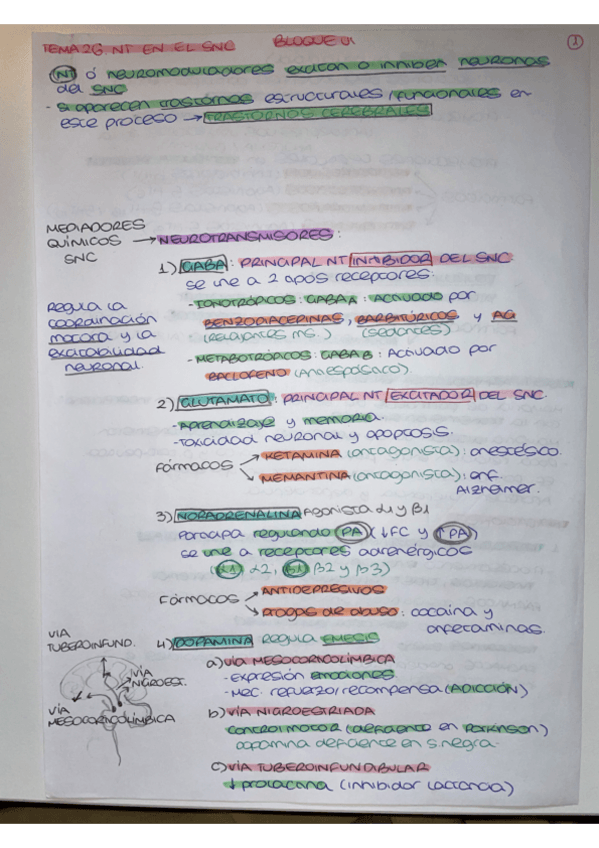 TEMA 26 NT EN EL SNC BLOQUE VI
1
NT ó neuromoduladores excitan o inhiben neuronas
del SNC
- si aparecen trastornos estructurales/funcionales en
este proceso → TRASTORNOS CEREBRALES
MEDIADORES
QUÍMICOS → NEUROTRANSMISORES:
SNC
1) GABA: PRINCIPAL NT INHIBIDOR DEL SNC
se une a 2 tipos receptores:
- IONOTRÓPICOS: GABA A: Activado por
BENZODIACEPINAS, BARBITÚRICOS y AG
(relajantes ms.) (sedantes)
- METABOTRÓPICOS: GABA B: Activado por
BACLOFENO (Antiespástico).
Regula la
coordinación
motora y la
excitabilidad
neuronal.
2) GLUTAMATO: PRINCIPAL NT EXCITADOR DEL SNC.
- Aprendizaje y memoria.
- Toxicidad neuronal y apoptosis.
Fármacos → KETAMINA (antagonista): anestésico.
→ MEMANTINA (antagonista): enf.
Alzheimer.
3) NORADRENALINA Agonista α1 y β1
Participa regulando PA (↓FC y ↑PA)
se une a receptores adrenérgicos
(α1 α2, β1 β2 y β3)
Fármacos → ANTIDEPRESIVOS
→ Drogas de abuso: cocaína y
anfetaminas.
4) DOPAMINA Regula EMESIS
a) VÍA MESOCORTICOLÍMBICA
- expresión emociones
- Mec. refuerzo/recompensa (ADICCIÓN)
b) VÍA NIGROESTRIADA
CONTROL MOTOR (deficiente en PARKINSON)
dopamina deficiente en s.negra.
c) VÍA TUBEROINFUNDIBULAR
↓ prolactina (inhibidor lactancia)
VÍA
TUBEROINFUND.
VÍA
NIGROEST.
VÍA
MESOCORTICOLÍMBICA